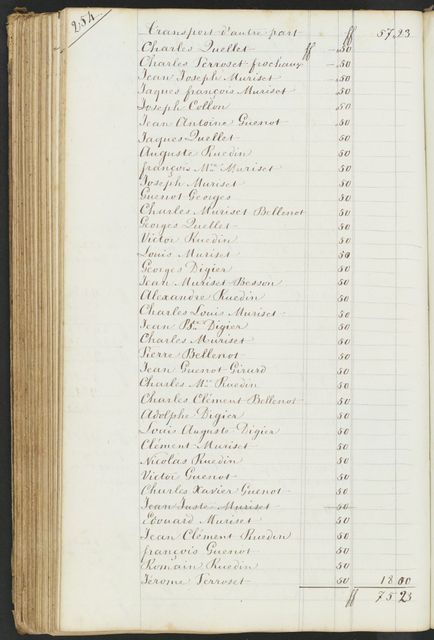 254
Transport d'autre part ff 57,23
Charles Quellet ff -,50
Charles Perroset frochaux -,50
Jean Joseph Muriset ,50
Jaques françois Muriset ,50
Joseph Collon ,50
Jean Antoine Guenot ,50
Jaques Quellet 50
Auguste Ruedin 50
françois Mce Muriset 50
Joseph Muriset 50
Guenot Georges 50
Charles Muriset Bellenot 50
Georges Quellet 50
Victor Ruedin 50
Louis Muriset 50
Georges Digier 50
Jean Muriset Besson 50
Alexandre Ruedin 50
Charles Louis Muriset 50
Jean Bte Digier 50
Charles Muriset 50
Pierre Bellenot 50
Jean Guenot Girard 50
Charles Mce Ruedin 50
Charles Clément Bellenot 50
Adolphe Digier 50
Louis Auguste Digier 50
Clément Muriset 50
Nicolas Ruedin 50
Victor Guenot 50
Charles Xavier Guenot 50
Jean Juste Muriset 50
Edouard Muriset 50
Jean Clément Ruedin 50
françois Guenot 50
Romain Ruedin 50
Jerome Perroset 50 18.00
ff 75.23